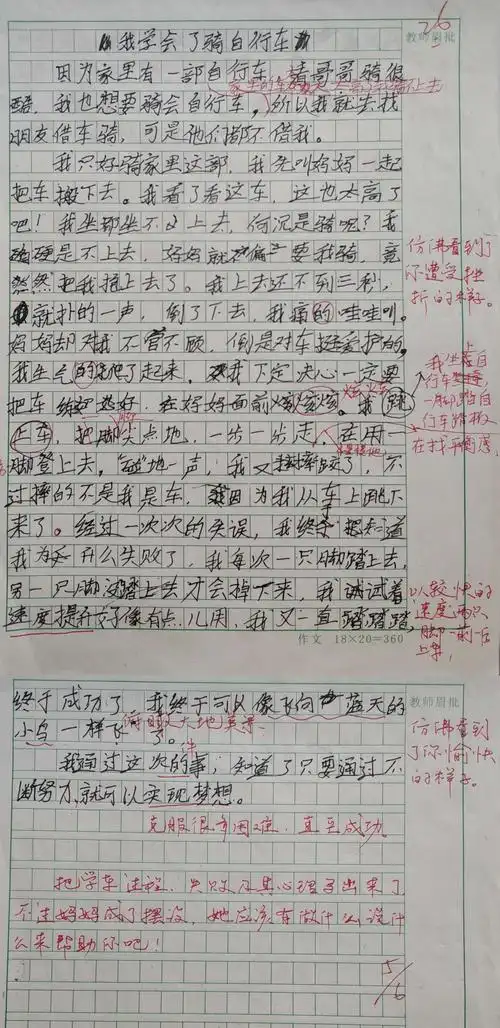 我学会了骑自行车
教师眉批
因为家里有一部自行车,看哥哥骑很
酷,我也想要骑会自行车,所以我就去找
朋友借车骑,可是他们都不借我。
我只好骑家里这部,我先叫妈妈一起
把车搬下去。我看了看这车,这也太高了
吧!我坐都坐不上去,何况是骑呢?我
硬是不上去,妈妈就偏要我骑,竟
然把我抱上去了。我上去还不到三秒,
就扑的一声,倒了下去,我痛的哇哇叫。
妈妈却对我不管不顾,倒是对车挺爱护的,
我生气的爬了起来,我下定决心一定要
把车练好,在妈妈面前炫炫。我跳
上车,把脚尖点地,一步一步走,在用一
脚登上去,"碰"地一声,我又摔了,不
过摔的不是我是车,因为我从车上跳下
来了。经过一次次的失误,我终于知道
我为什么失败了,我每次一只脚踏上去,
另一只脚没踏上去才会掉下来,我试着
速度提升好像有点儿用,我又一直踏踏踏,
仿佛看到了
你遭受挫
折的样子。
我坐上自
行车
一脚踏自
行车踏板
在找平衡感,
以较快的
速度两只
脚一前一后
上车,
作文 18×20=360
教师眉批
终于成功了,我终于可以像飞向蓝天的
小鸟一样飞了。
俯瞰大地美景
我通过这次的事,知道了只要通过不
断努力,就可以实现梦想。
克服很多困难,直至成功。
仿佛看到
了你愉快
的样子。
把学车过程,失败及其心理写出来了
不过妈妈成了摆设,她应该有做什么说什
么来帮助你吧!
5/6